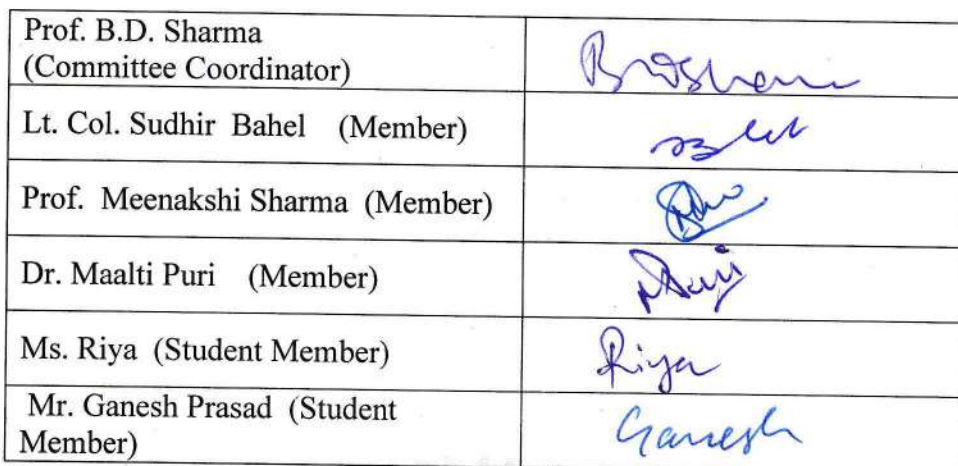 Prof. B.D. Sharma
(Committee Coordinator)
BDSharma
Lt. Col. Sudhir Bahel (Member)
Prof. Meenakshi Sharma (Member)
Dr. Maalti Puri (Member)
MPuri
Ms. Riya (Student Member)
Riya
Mr. Ganesh Prasad (Student
Member)
Ganesh